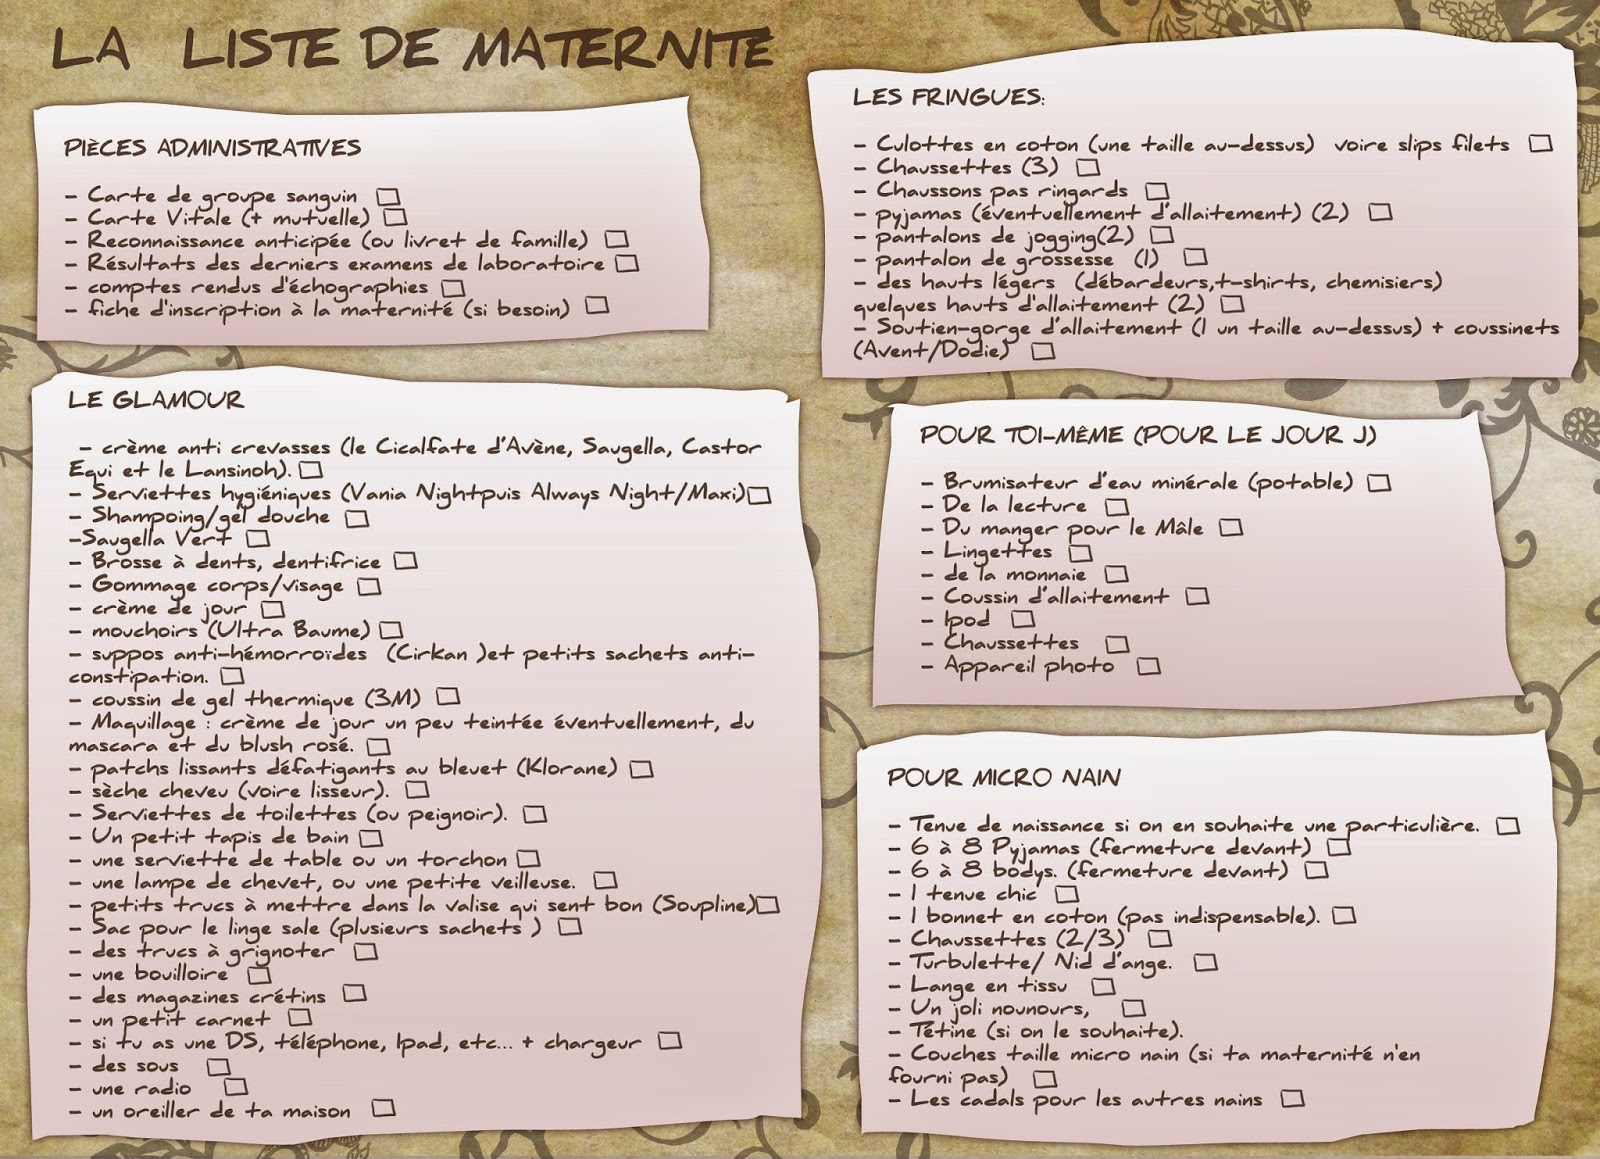 LA LISTE DE MATERNITE
PIÈCES ADMINISTRATIVES
- Carte de groupe sanguin
- Carte Vitale (+ mutuelle)
- Reconnaissance anticipée (ou livret de famille)
- Résultats des derniers examens de laboratoire
- comptes rendus d'échographies
- fiche d'inscription à la maternité (si besoin)
LE GLAMOUR
- crème anti crevasses (le Cicalfate d'Avène, Saugella, Castor
Equi et le Lansinoh).
- Serviettes hygiéniques (Vania Nightpuis Always Night/Maxi)
- Shampoing/gel douche
-Saugella Vert
- Brosse à dents, dentifrice
- Gommage corps/visage
- crème de jour
- mouchoirs (Ultra Baume)
- suppos anti-hémorroïdes (Cirkan )et petits sachets anti-
constipation.
- coussin de gel thermique (3M)
- Maquillage : crème de jour un peu teintée éventuellement, du
mascara et du blush rosé.
- patchs lissants défatigants au bleuet (Klorane)
- sèche cheveu (voire lisseur).
- Serviettes de toilettes (ou peignoir).
- Un petit tapis de bain
- une serviette de table ou un torchon
- une lampe de chevet, ou une petite veilleuse.
- petits trucs à mettre dans la valise qui sent bon (Soupline)
- Sac pour le linge sale (plusieurs sachets )
- des trucs à grignoter
- une bouilloire
- des magazines crétins
- un petit carnet
- si tu as une DS, téléphone, Ipad, etc... + chargeur
- des sous
- une radio
- un oreiller de ta maison
LES FRINGUES:
- Culottes en coton (une taille au-dessus) voire slips filets
- Chaussettes (3)
- Chaussons pas ringards
- pyjamas (éventuellement d'allaitement) (2)
- pantalons de jogging(2)
- pantalon de grossesse (1)
- des hauts légers (débardeurs,t-shirts, chemisiers)
quelques hauts d'allaitement (2)
- Soutien-gorge d'allaitement (1 un taille au-dessus) + coussinets
(Avent/Dodie)
POUR TOI-MÊME (POUR LE JOUR J)
- Brumisateur d'eau minérale (potable)
- De la lecture
- Du manger pour le Mâle
- Lingettes
- de la monnaie
- Coussin d'allaitement
- Ipod
- Chaussettes
- Appareil photo
POUR MICRO NAIN
- Tenue de naissance si on en souhaite une particulière.
- 6 à 8 Pyjamas (fermeture devant)
- 6 à 8 bodys. (fermeture devant)
- 1 tenue chic
- 1 bonnet en coton (pas indispensable).
- Chaussettes (2/3)
- Turbulette/ Nid d'ange.
- Lange en tissu
- Un joli nounours,
- Tétine (si on le souhaite).
- Couches taille micro nain (si ta maternité n'en
fourni pas)
- Les cadals pour les autres nains